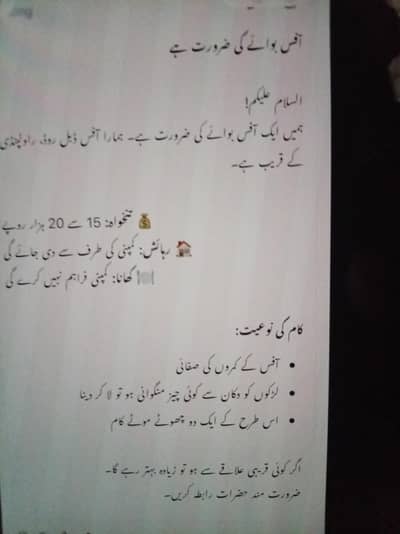 آفس بوائے کی ضرورت ہے
السلام علیکم!
ہمیں ایک آفس بوائے کی ضرورت ہے۔ ہمارا آفس ڈبل روڈ، راولپنڈی
کے قریب ہے۔
💰 تنخواہ: 15 سے 20 ہزار روپے
🏠 رہائش: کمپنی کی طرف سے دی جائے گی
🍽️ کھانا: کمپنی فراہم نہیں کرے گی
کام کی نوعیت:
• آفس کے کمروں کی صفائی
• لڑکوں کو دکان سے کوئی چیز منگوانی ہو تو لا کر دینا
• اس طرح کے ایک دو چھوٹے موٹے کام
اگر کوئی قریبی علاقے سے ہو تو زیادہ بہتر رہے گا۔
ضرورت مند حضرات رابطہ کریں۔